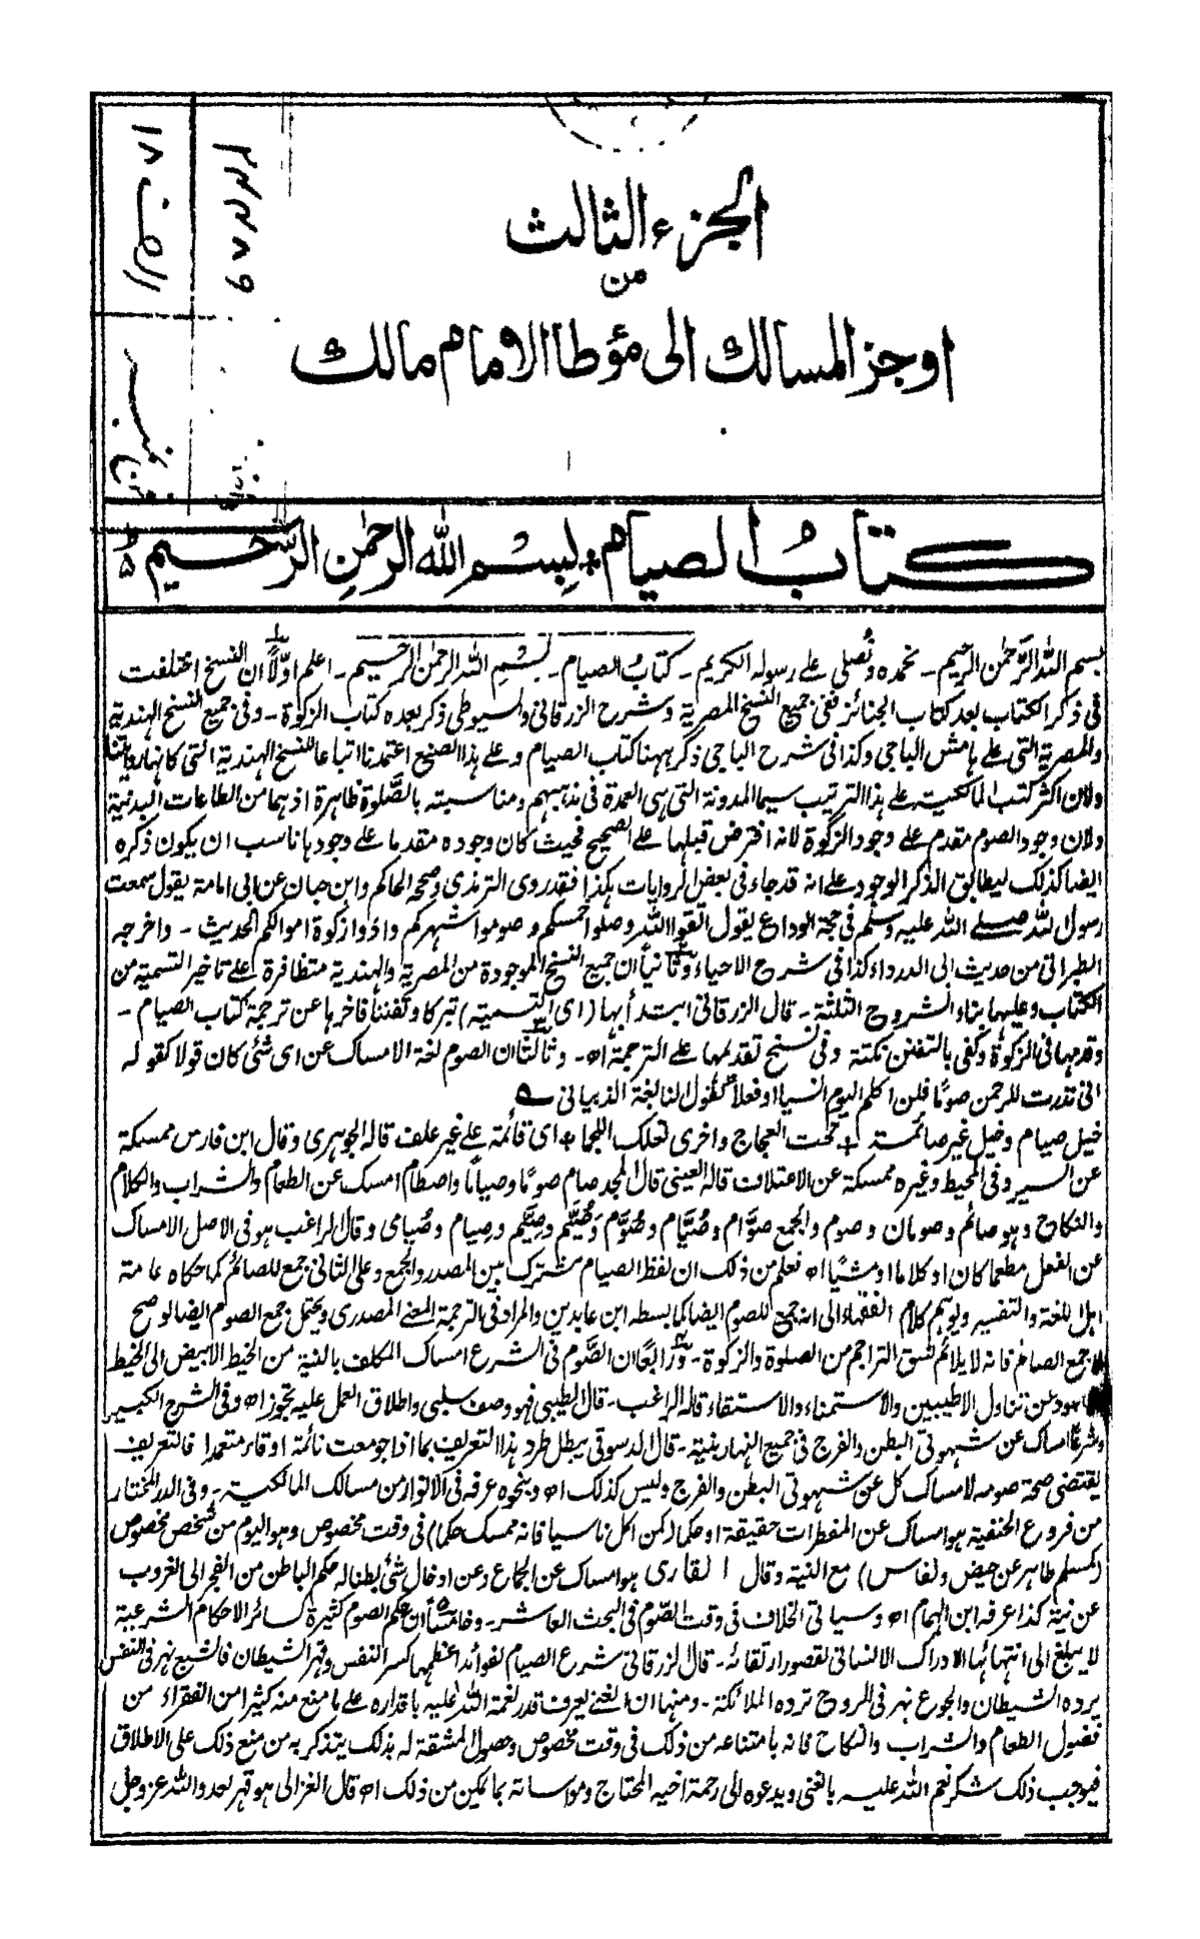 الجزء الثالث
من
اوجز المسالك الى مؤطا الامام مالك
كتاب الصيام * بسم الله الرحمن الرحيم ط
بسم الله الرحمن الرحيم - نحمده ونصلى على رسوله الكريم - كتاب الصيام - بسم الله الرحمن الرحيم - اعلم اولا ان النسخ اختلفت
فى ذكر الكتاب بعد كتاب الجنائز ففى جميع النسخ المصرية وشرح الزرقانى والسيوطى ذكر بعده كتاب الزكوة - وفى جميع النسخ الهندية
والمصرية التى على هامش الباجى وكذا فى شرح الباجى ذكر ههنا كتاب الصيام وعلى هذا الصنيع اعتمدنا اتباعا للنسخ الهندية التى كانها
ولان اكثر كتب المالكية على هذا الترتيب سيما المدونة التى هى العمدة فى مذهبهم ومناسبته بالصلوة ظاهرة اذ هما من الطاعات البدنية
ولان وجود الصوم مقدم على وجود الزكوة لانه افترض قبلها على الصحيح فحيث كان وجوده مقدما على وجودها ناسب ان يكون ذكره
ايضا كذلك ليطابق الذكر الوجود على انه قد جاء فى بعض الروايات هكذا فقد روى الترمذى وصححه الحاكم وابن حبان عن ابى امامة يقول سمعت
رسول الله صلى الله عليه وسلم فى حجة الوداع يقول اتقوا الله وصلوا خمسكم وصوموا شهركم وادوا زكوة اموالكم الحديث - واخرجه
الطبرانى من حديث ابى الدرداء كذا فى شرح الاحياء وثانيا ان جميع النسخ الموجودة من المصرية والهندية متظافرة على تاخير التسمية من
الكتاب وعليها بناء الشروح الثلثة - قال الزرقانى ابتدأ بها (اى التسمية) تبركا وتفننا فاخرها عن ترجمة كتاب الصيام -
وقدمها فى الزكوة وكفى بالتفنن نكتة وفى نسخ تقديمها على الترجمة اه - وثالثا ان الصوم لغة الامساك عن اى شئ كان قولا كقوله
انى نذرت للرحمن صوما فلن اكلم اليوم انسيا او فعلا كقول النابغة الذبيانى ؎
خيل صيام وخيل غير صائمة * تحت العجاج واخرى تعلك اللجما * اى قائمة على غير علف قاله الجوهرى وقال ابن فارس ممسكة
عن السير وفى المحيط وغيره ممسكة عن الاعتلاف قاله العينى قال المجد صام صوما وصياما واصطام امسك عن الطعام والشراب والكلام
والنكاح وهو صائم وصومان وصوم والجمع صوام وصيام وصوم وصيم وصيم وصيام وصيامى وقال الراغب هو فى الاصل الامساك
عن الفعل مطعما كان او كلاما او مشيا اه فعلم من ذلك ان لفظ الصيام مشترك بين المصدر والجمع وعلى الثانى جمع للصائم كما حكاه عامة
اهل اللغة والتفسير ويوهم كلام الفقهاء الى انه جمع للصوم ايضا كما بسطه ابن عابدين والمراد فى الترجمة المعنى المصدرى ويحتمل جمع الصوم ايضا لو صح
لا جمع الصائم فانه لا يلائم نسق التراجم من الصلوة والزكوة - ورابعا ان الصوم فى الشرع امساك المكلف بالنية من الخيط الابيض الى الخيط
الاسود عن تناول الاطيبين والاستمناء والاستقاء قاله الراغب - قال الطيبى فهو وصف سلبى واطلاق العمل عليه تجوز اه وفى الشرح الكبير
وشرعا امساك عن شهوتى البطن والفرج فى جميع النهار بنية - قال الدسوقى يبطل طرد هذا التعريف بما اذا جومعت نائمة او قاء متعمدا فالتعريف
يقتضى صحة صومه لامساك كل عن شهوتى البطن والفرج وليس كذلك اه وبنحوه عرفه فى الانوار من مسالك المالكية - وفى الدر المختار
من فروع الحنفية هو امساك عن المفطرات حقيقة او حكما (كمن اكل ناسيا فانه ممسك حكما) فى وقت مخصوص وهو اليوم من شخص مخصوص
(كمسلم طاهر عن حيض ونفاس) مع النية وقال القارى هو امساك عن الجماع وعن ادخال شئ بطنا له حكم الباطن من الفجر الى الغروب
عن نية كذا عرفه ابن الهمام اه وسياتى الخلاف فى وقت الصوم فى البحث العاشر - وخامسا ان حكم الصوم كثيرة كسائر الاحكام الشرعية
لا يبلغ الى انتهائها الادراك الانسانى لقصور ارتقائه - قال الزرقانى شرع الصيام لفوائد اعظمها كسر النفس وقهر الشيطان فالشبع نهر فى النفس
يرده الشيطان والجوع نهر فى الروح ترده الملائكة - ومنها ان الغنى يعرف قدر نعمة الله عليه باقداره على ما منع منه كثيرا من الفقراء من
فضول الطعام والشراب والنكاح فانه بامتناعه من ذلك فى وقت مخصوص وحصول المشقة له بذلك يتذكر به من منع ذلك على الاطلاق
فيوجب ذلك شكر نعم الله عليه بالغنى ويدعوه الى رحمة اخيه المحتاج ومواساته بما يمكن من ذلك اه قال الغزالى هو قهر لعدو الله عز وجل